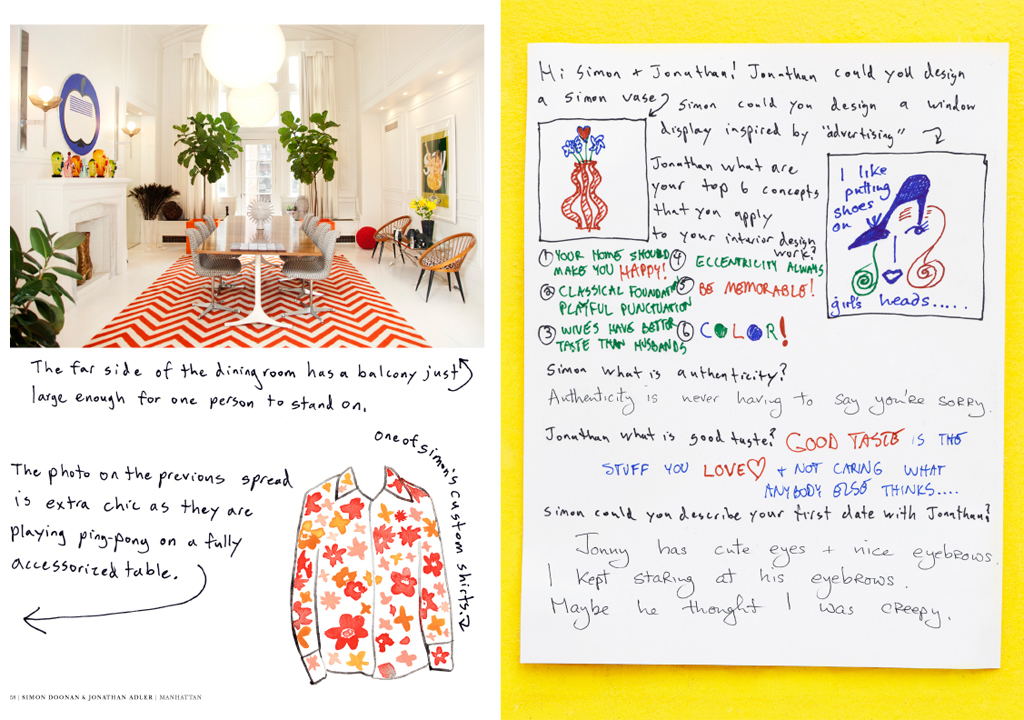 The far side of the diningroom has a balcony just
large enough for one person to stand on.
one of simon's custom shirts.
The photo on the previous spread
is extra chic as they are
playing ping-pong on a fully
accessorized table.
58 | SIMON DOONAN & JONATHAN ADLER | MANHATTAN
Hi Simon + Jonathan! Jonathan could you design
a Simon vase?
Simon could you design a window
display inspired by "advertising"
Jonathan what are
your top 6 concepts
that you apply
to your interior design
work?
I like
putting
shoes
on
girl's heads.....
① YOUR HOME SHOULD
MAKE YOU HAPPY!
② CLASSICAL FOUNDATION
PLAYFUL PUNCTUATION
③ WIVES HAVE BETTER
TASTE THAN HUSBANDS
④ ECCENTRICITY ALWAYS
⑤ BE MEMORABLE!
⑥ COLOR!
Simon what is authenticity?
Authenticity is never having to say you're sorry.
Jonathan what is good taste? GOOD TASTE IS THE
STUFF YOU LOVE♡ + NOT CARING WHAT
ANYBODY ELSE THINKS....
Simon could you describe your first date with Jonathan?
Jonny has cute eyes + nice eyebrows.
I kept staring at his eyebrows.
Maybe he thought I was creepy.